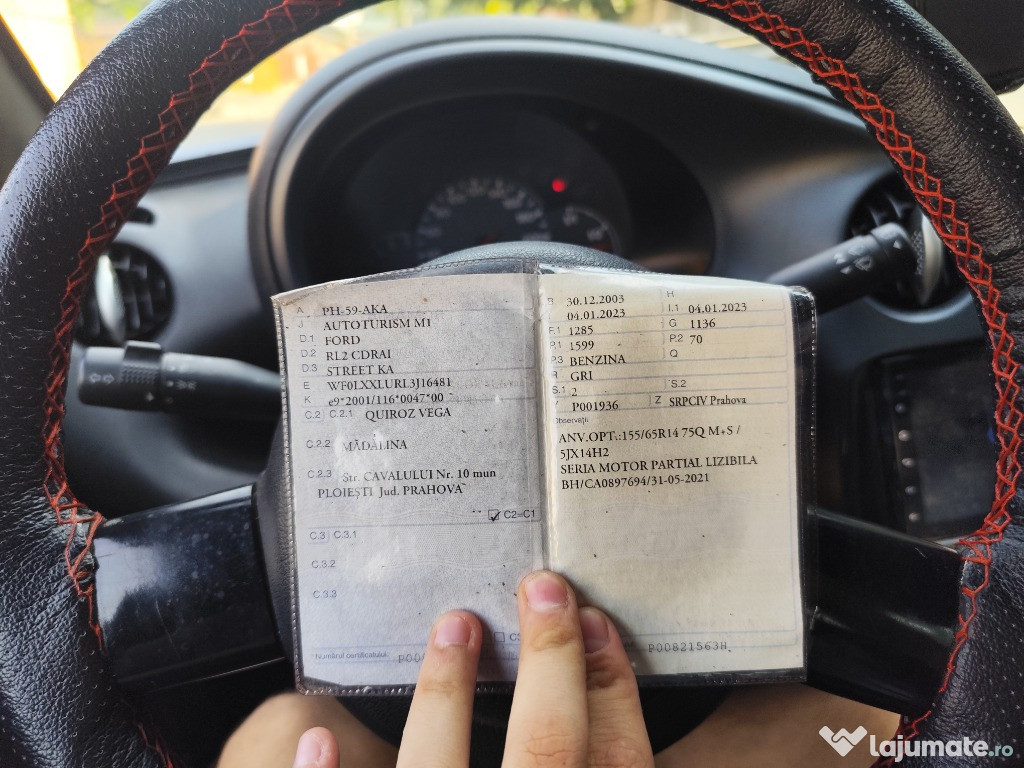 A PH-59-AKA
J AUTOTURISM M1
D.1 FORD
D.2 RL2 CDRAI
D.3 STREET KA
E WF0LXXLURL3J16481
K e9*2001/116*0047*00
C.2 C.2.1 QUIROZ VEGA
C.2.2 MĂDĂLINA
C.2.3 Str. CAVALULUI Nr. 10 mun
PLOIEȘTI Jud. PRAHOVA
C2=C1
C.3 C.3.1
C.3.2
C.3.3
Numărul certificatului
B 30.12.2003 H
04.01.2023 I.1 04.01.2023
F.1 1285 G 1136
P.1 1599 P.2 70
P.3 BENZINA Q
R GRI
S.1 2 S.2
Y P001936 Z SRPCIV Prahova
Observații
ANV.OPT.:155/65R14 75Q M+S /
5JX14H2
SERIA MOTOR PARTIAL LIZIBILA
BH/CA0897694/31-05-2021
P00821563H
lajumate.ro